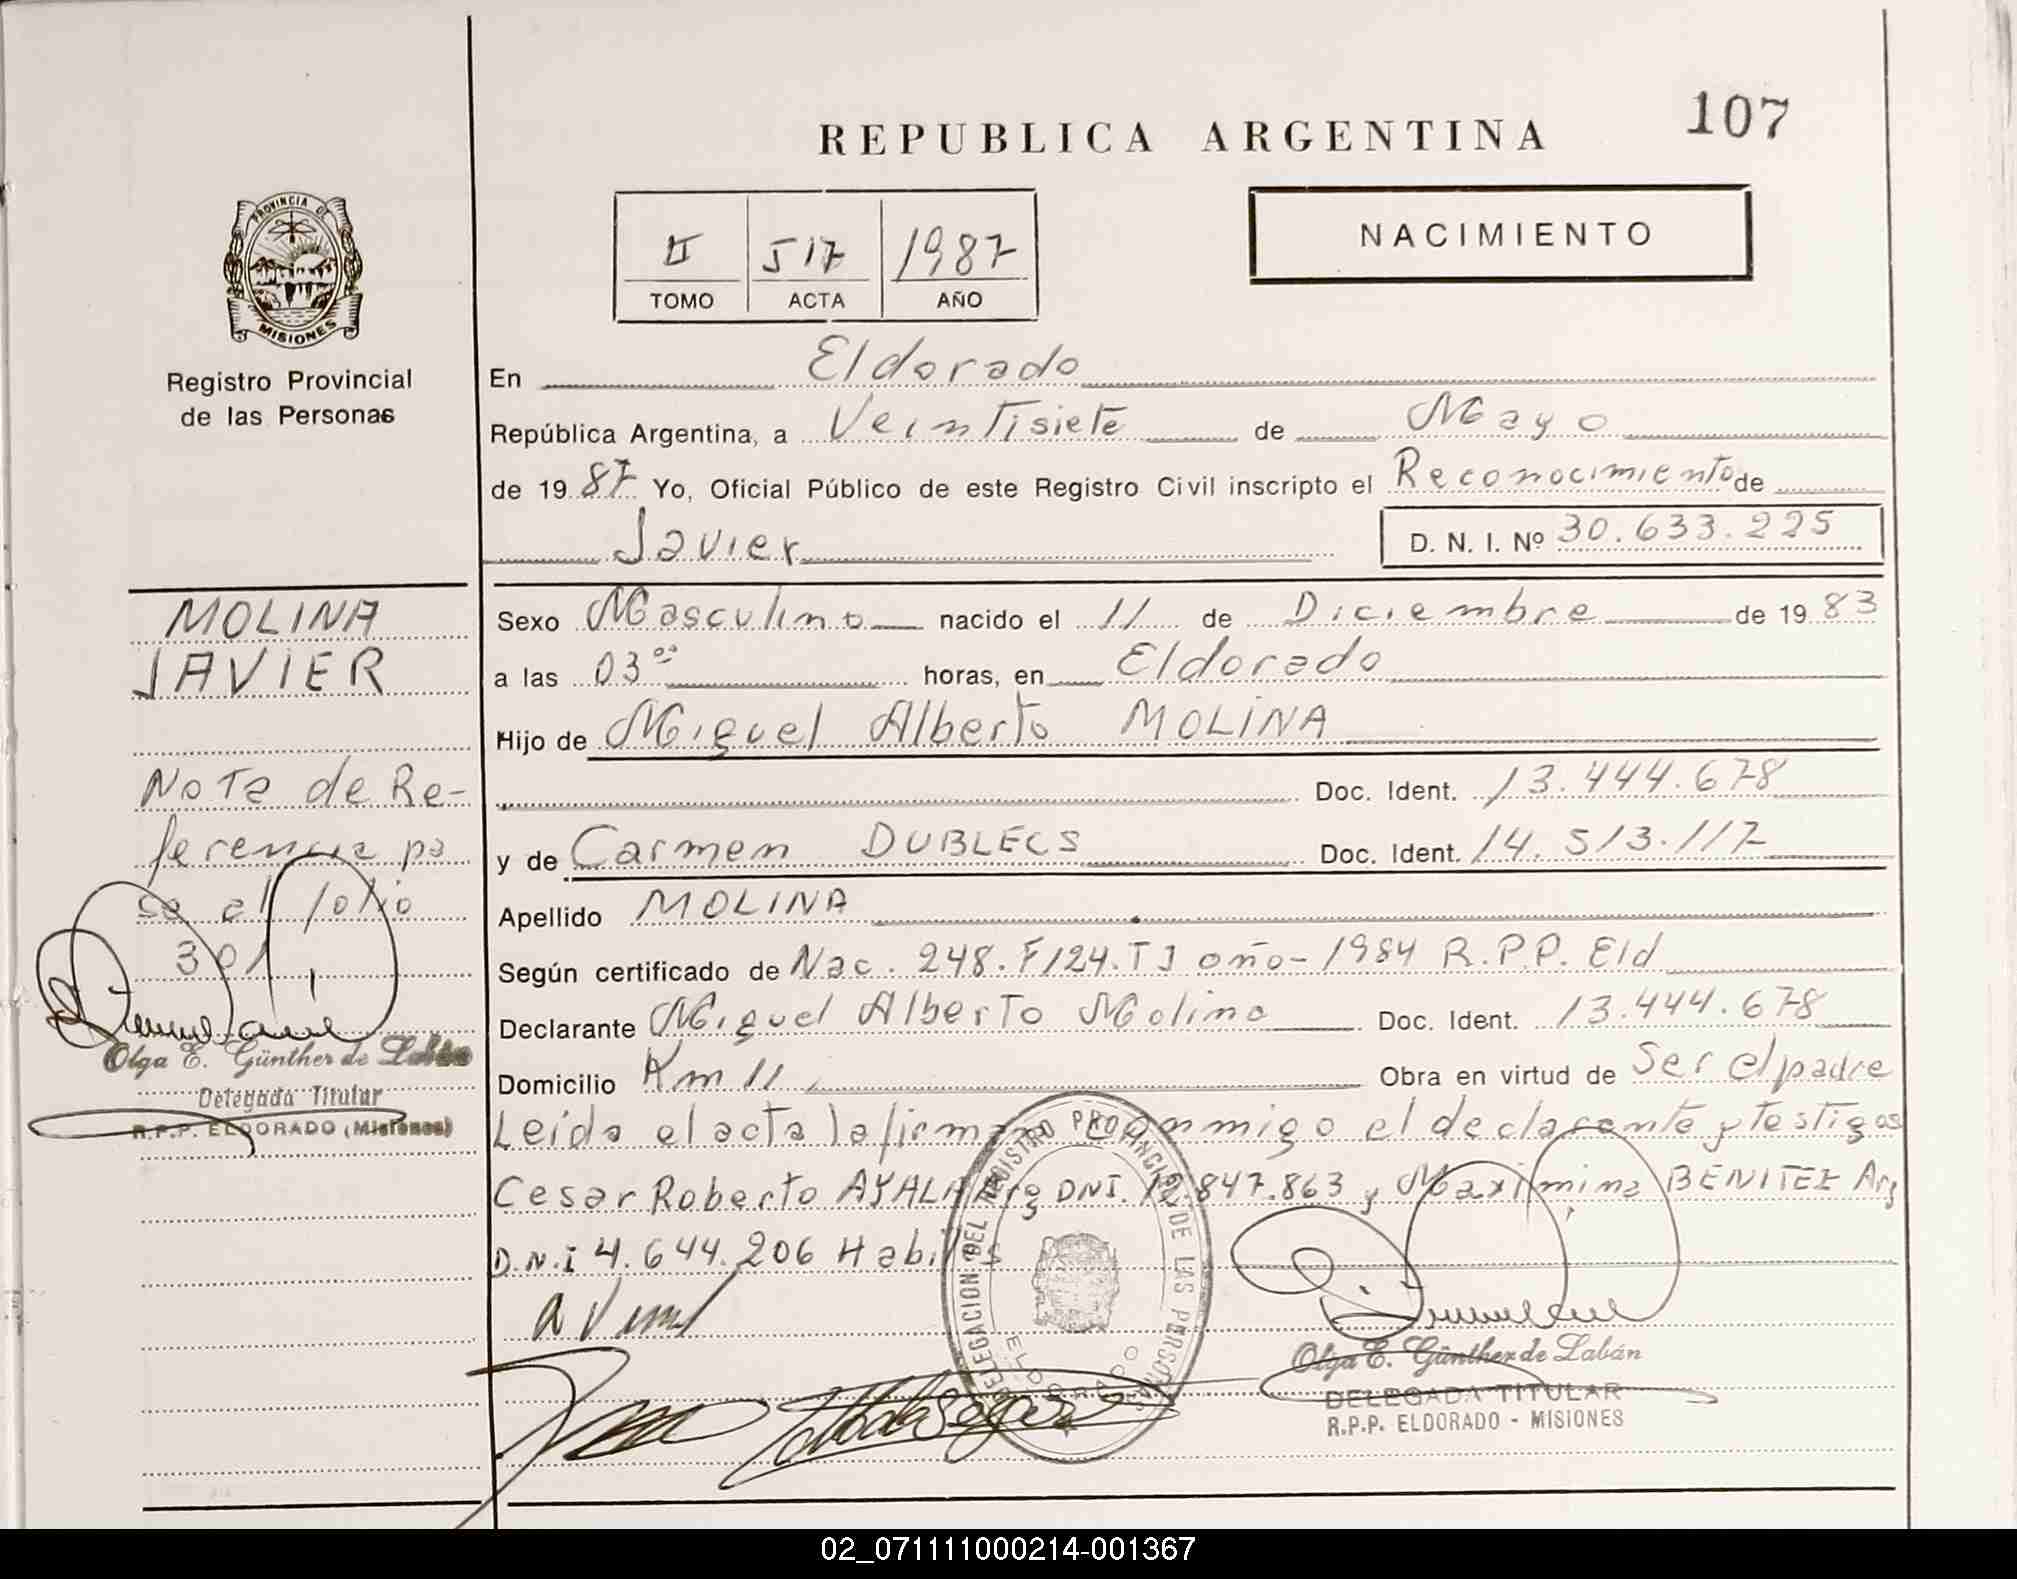 107
REPUBLICA ARGENTINA
NACIMIENTO
II 517 1987
TOMO ACTA AÑO
PROVINCIA DE
MISIONES
Registro Provincial
de las Personas
En Eldorado
República Argentina, a Veintisiete de Mayo
de 19 87 Yo, Oficial Público de este Registro Civil inscripto el Reconocimiento de
Javier D. N. I. Nº 30.633.225
MOLINA
JAVIER
Nota de Re-
ferencia pa
sa al folio
301
Olga E. Günther de Labán
Delegada Titular
R.P.P. ELDORADO (Misiones)
Sexo Masculino nacido el 11 de Diciembre de 19 83
a las 03 00 horas, en Eldorado
Hijo de Miguel Alberto MOLINA
Doc. Ident. 13.444.678
y de Carmen DUBLECS Doc. Ident. 14.513.117
Apellido MOLINA
Según certificado de Nac. 248.F124.TI año-1984 R.P.P. Eld
Declarante Miguel Alberto Molina Doc. Ident. 13.444.678
Domicilio Km 11 Obra en virtud de Ser el padre
Leída el acta la firman conmigo el declarante y testigos
Cesar Roberto AYALA Arg DNI. 12.847.863 y Maximina BENITEZ Arg
D.N.I 4.644.206 Habiles
DELEGACION DEL REGISTRO PROVINCIAL DE LAS PERSONAS
ELDORADO
Olga E. Günther de Labán
DELEGADA TITULAR
R.P.P. ELDORADO - MISIONES
02_071111000214-001367